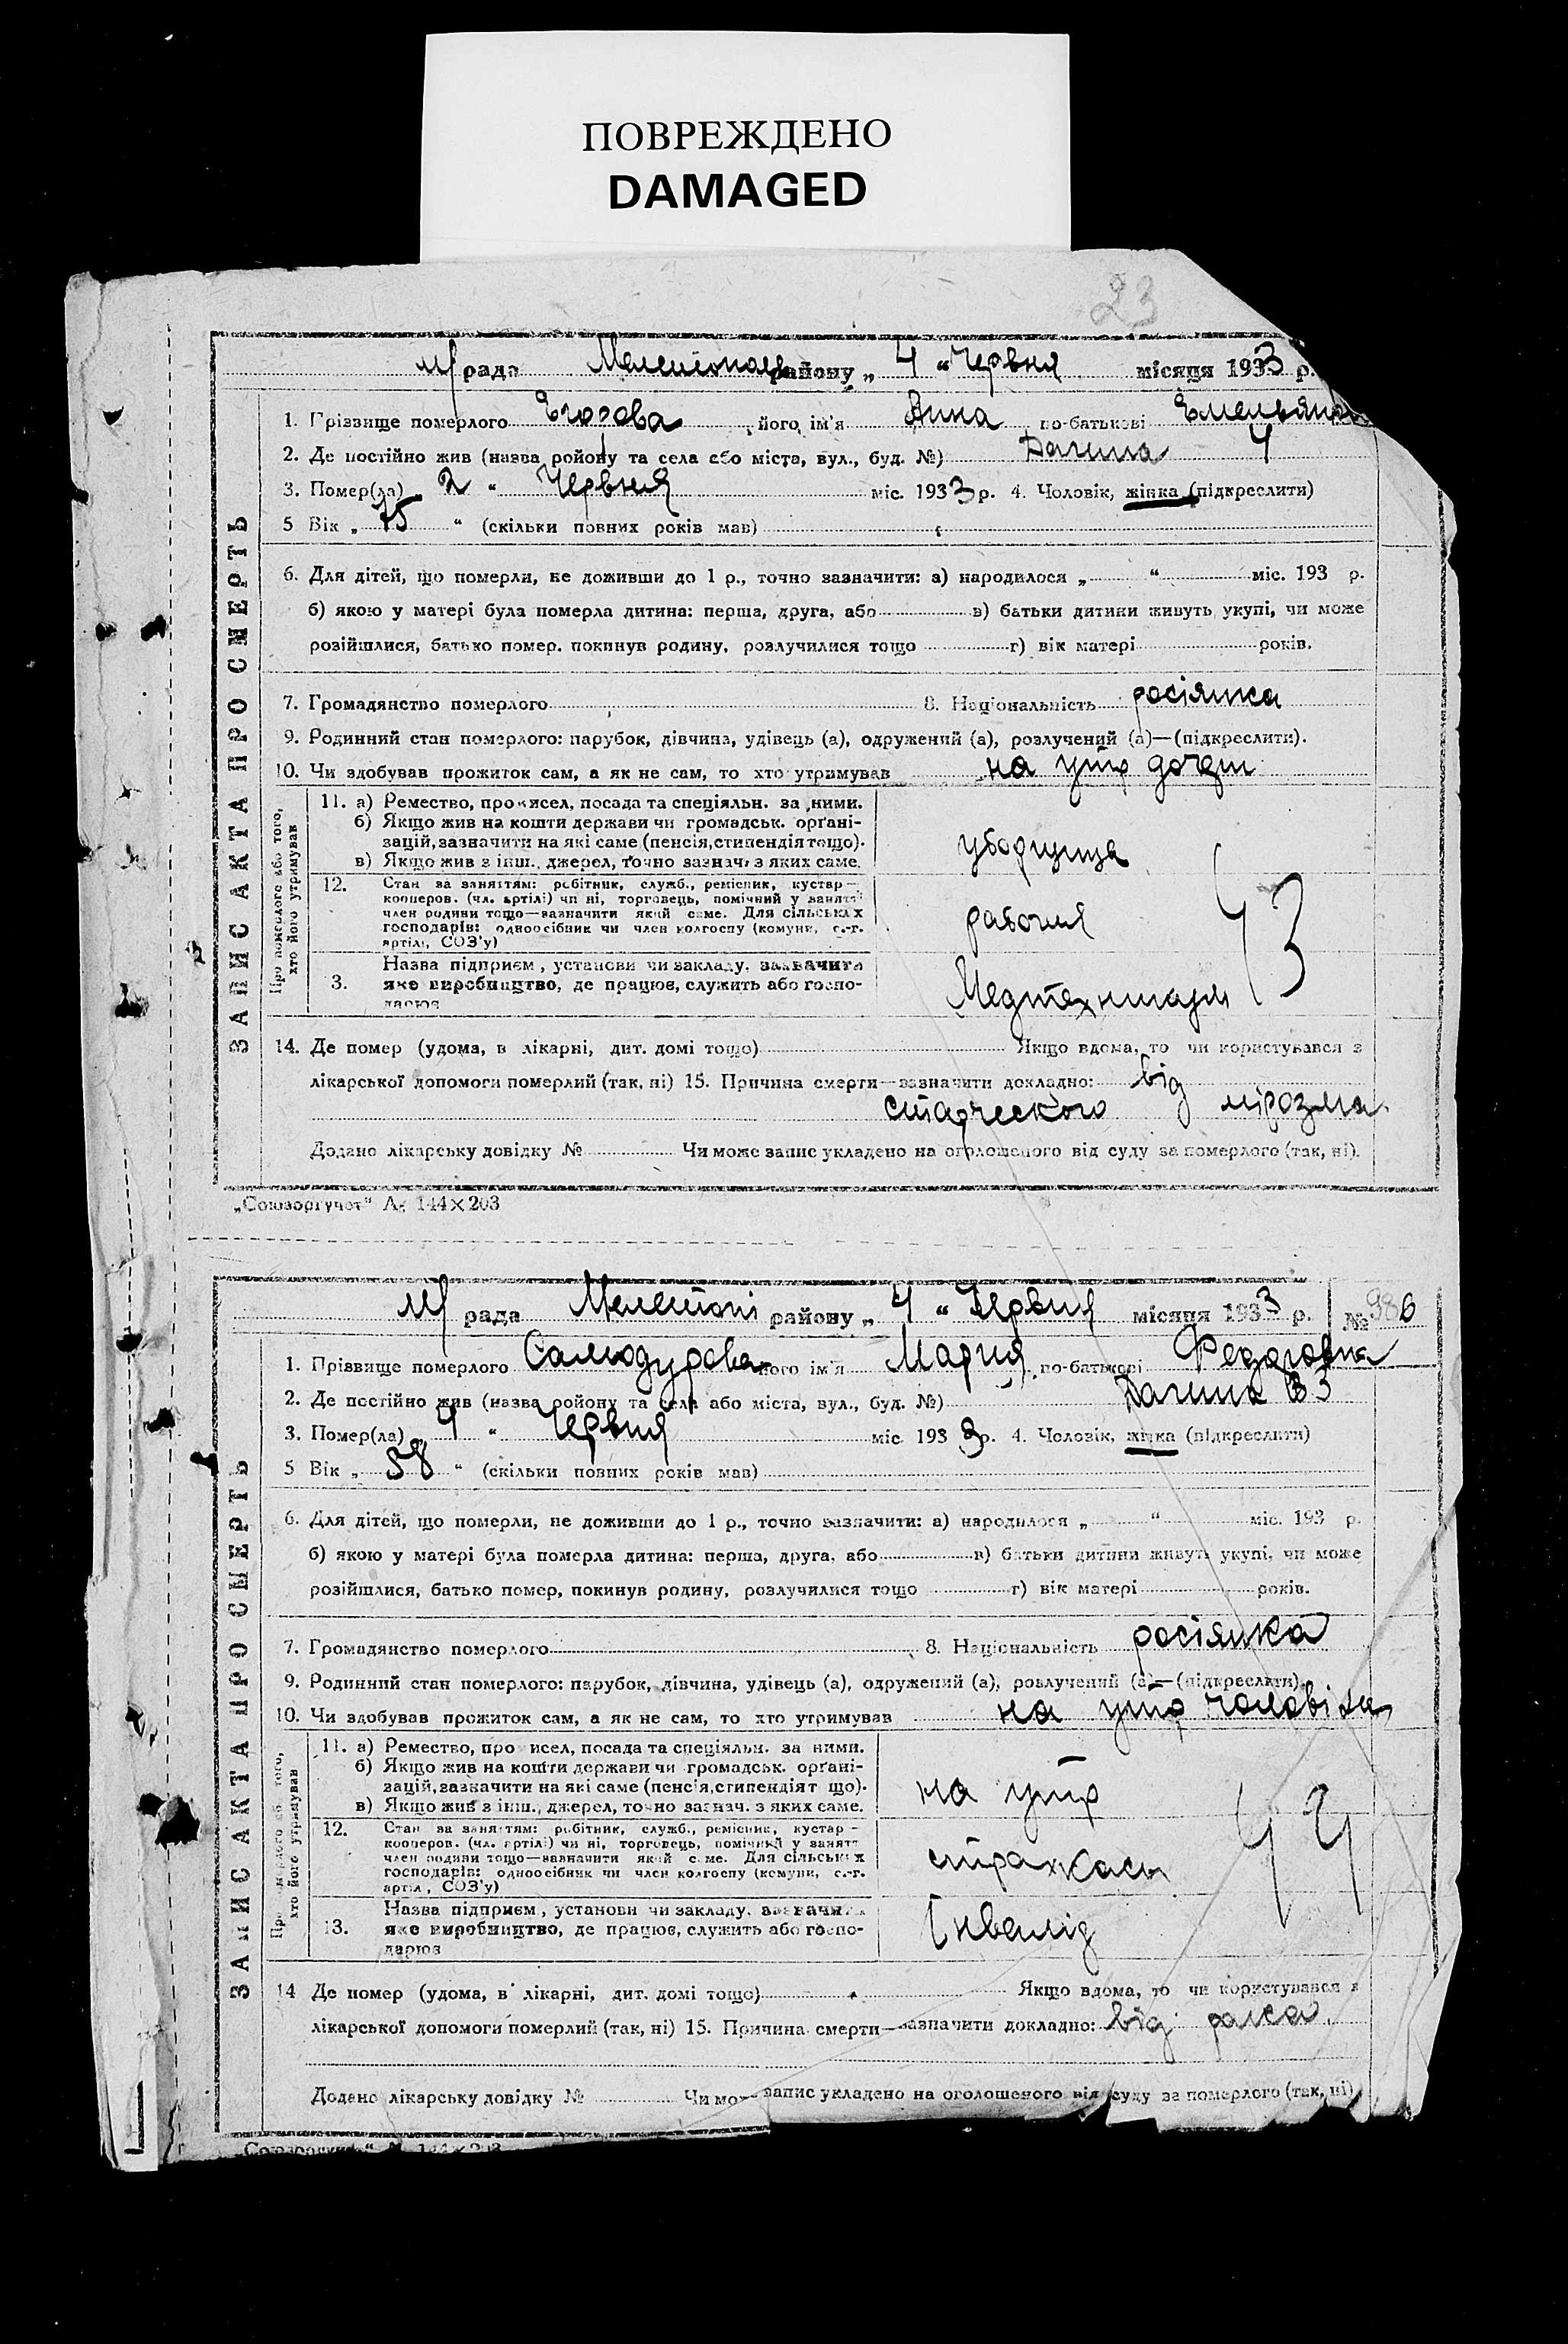 ПОВРЕЖДЕНО
DAMAGED
23
рада района „ 4 “ Червня місяця 1933 р.
1. Прізвище померлого Егорова його ім'я Анна по-батькові
2. Де постійно жив (назва району та села або міста, вул., буд. №) Дачина 4
3. Помер(ла) „ 2 “ Червня міс. 1933 р. 4. Чоловік, жінка (підкреслити)
5 Вік „ 75 “ (скільки повних років мав)
6. Для дітей, що померли, не доживши до 1 р., точно зазначити: а) народилося „ “ міс. 193 р.
б) якою у матері була померла дитина: перша, друга, або в) батьки дитини живуть укупі, чи може
розійшлися, батько помер, покинув родину, розлучилися тощо г) вік матері років.
7. Громадянство померлого 8. Національність росіянка
9. Родинний стан померлого: парубок, дівчина, удівець (а), одружений (а), розлучений (а)—(підкреслити).
10. Чи здобував прожиток сам, а як не сам, то хто утримував на утр дочери
Про померлого або того, хто його утримував
11. а) Ремество, промисел, посада та спеціяльн. за ними.
б) Якщо жив на кошти держави чи громадськ. орґані-
зацій, зазначити на які саме (пенсія, стипендія тощо).
в) Якщо жив з інш., джерел, точно зазнач. з яких саме.
уборщица
12. Стан за заняттям: робітник, служб., ремісник, кустар—
кооперов. (чл. артілі) чи ні, торговець, помічний у занятті
член родини тощо—зазначити який саме. Для сільських
господарів: одноосібник чи член колгоспу (комуни, с.-г.
артілі, СОЗ'у)
рабочая
43
3. Назва підприєм., установи чи закладу, зазначити
яке виробництво, де працює, служить або госпо-
дарює
14. Де помер (удома, в лікарні, дит. домі тощо) Якщо вдома, то чи користувався з
лікарської допомоги померлий (так, ні) 15. Причина смерти—зазначити докладно: від
старческого
Додано лікарську довідку № Чи може запис укладено на оголошеного від суду за померлого (так, ні).
ЗАПИС АКТА ПРО СМЕРТЬ
„Союзоргучот“ А₅ 144×203
рада Мелітопі району „ 4 “ Червня місяця 1933 р. № 986
1. Прізвище померлого Самодурова його ім'я Мария по-батькові Федоровна
2. Де постійно жив (назва району та села або міста, вул., буд. №) Дачина 33
3. Помер(ла) „ 4 “ Червня міс. 1933 р. 4. Чоловік, жінка (підкреслити)
5 Вік „ 58 “ (скільки повних років мав)
6. Для дітей, що померли, не доживши до 1 р., точно зазначити: а) народилося „ “ міс. 193 р.
б) якою у матері була померла дитина: перша, друга, або в) батьки дитини живуть укупі, чи може
розійшлися, батько помер, покинув родину, розлучилися тощо г) вік матері років.
7. Громадянство померлого 8. Національність росіянка
9. Родинний стан померлого: парубок, дівчина, удівець (а), одружений (а), розлучений (а)—(підкреслити).
10. Чи здобував прожиток сам, а як не сам, то хто утримував на утр чоловіка
11. а) Ремество, промисел, посада та спеціяльн. за ними.
б) Якщо жив на кошти держави чи громадськ. орґані-
зацій, зазначити на які саме (пенсія, стипендія тощо).
в) Якщо жив з інш., джерел, точно зазнач. з яких саме.
на утр
12. Стан за заняттям: робітник, служб., ремісник, кустар—
кооперов. (чл. артілі) чи ні, торговець, помічний у занятті
член родини тощо—зазначити який саме. Для сільських
господарів: одноосібник чи член колгоспу (комуни, с.-г.
артілі, СОЗ'у)
страхкасы
44
13. Назва підприєм., установи чи закладу, зазначити
яке виробництво, де працює, служить або госпо-
дарює
Інвалід
14 Де помер (удома, в лікарні, дит. домі тощо) Якщо вдома, то чи користувався з
лікарської допомоги померлий (так, ні) 15. Причина смерти—зазначити докладно: від рака.
Додано лікарську довідку № Чи може запис укладено на оголошеного від суду за померлого (так, ні)
ЗАПИС АКТА ПРО СМЕРТЬ
„Союзоргучот“ А₅ 144×203